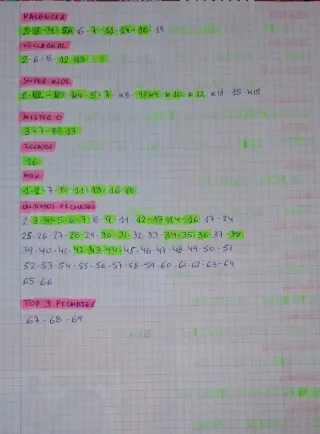 VALENCIA
2-3-4-5A-6-7-11-14-18-19
VILLAREAL
2-6-8-12-13
SUPER KIDS
MISTER O
3-7-8-13
ICONOS
16
MIX
1-2-7-8-11-13-16-18
ULTIMOS FICHAJES
2-3-4-5-6-7-8-9-11 12-13-14-16-17-24
25-26-27-28-29-30-31-32-33-34-35-36-37-38
39-40-41-42-43-44-45-46-47-48-49-50-51
52-53-54-55-56-57-58-59-60-61-62-63-64
65-66
TOP 3 FICHAJES
67-68-69